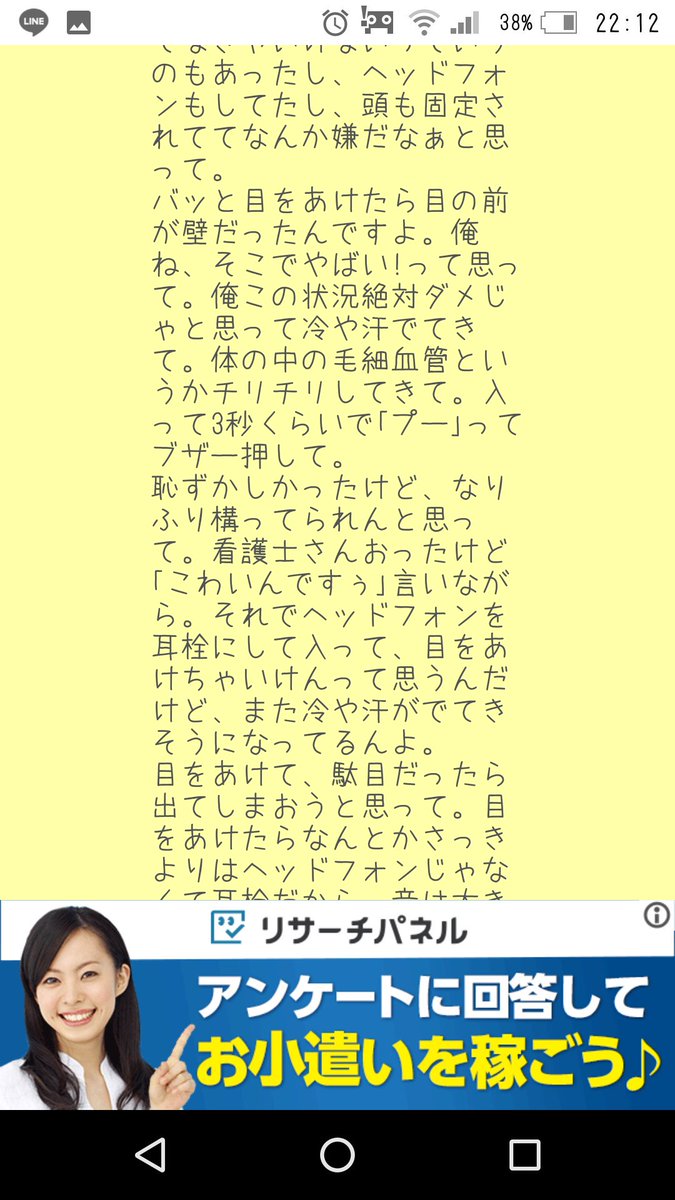 LINE
38% 22:12
のもあったし、ヘッドフォ
ンもしてたし、頭も固定さ
れててなんか嫌だなぁと思
って。
バッと目をあけたら目の前
が壁だったんですよ。俺
ね、そこでやばい!って思っ
て。俺この状況絶対ダメじ
ゃと思って冷や汗でてき
て。体の中の毛細血管とい
うかチリチリしてきて。入
って3秒くらいで｢プー｣って
ブザー押して。
恥ずかしかったけど、なり
ふり構ってられんと思っ
て。看護士さんおったけど
｢こわいんですぅ｣言いなが
ら。それでヘッドフォンを
耳栓にして入って、目をあ
けちゃいけんって思うんだ
けど、また冷や汗がでてき
そうになってるんよ。
目をあけて、駄目だったら
出てしまおうと思って。目
をあけたらなんとかさっき
よりはヘッドフォンじゃな
くて耳栓だから、音は大き
リサーチパネル
アンケートに回答して
お小遣いを稼ごう♪